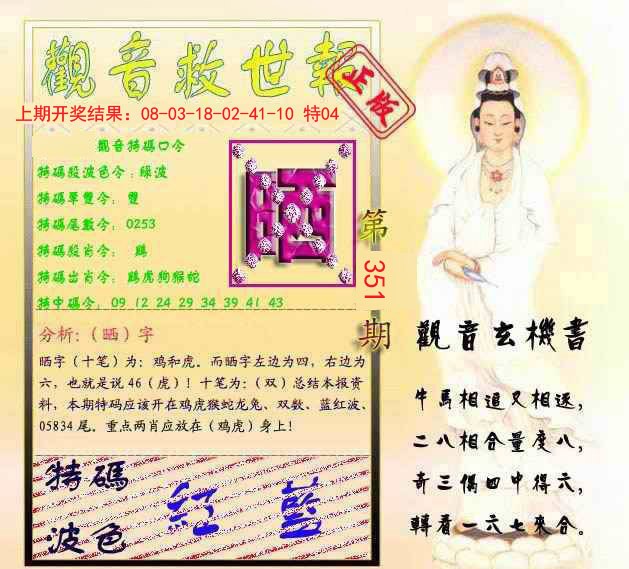 觀音救世報
正版
上期开奖结果：08-03-18-02-41-10 特04
觀音特碼口令
特碼殺波色令：綠波
特碼單雙令： 雙
特碼尾數令： 0253
特碼殺肖令： 鷄
特碼出肖令： 鷄虎狗猴蛇
特中碼令： 09 12 24 29 34 39 41 43
晒
第
351
期
分析:（晒）字
晒字（十笔）为：鸡和虎。而晒字左边为四，右边为
六，也就是说46（虎）！十笔为:（双）总结本报资
料，本期特码应该开在鸡虎猴蛇龙兔、双数、蓝红波、
05834 尾。重点两肖应放在（鸡虎）身上！
特碼
波色
紅 藍
觀音玄機書
牛馬相追又相逐，
二八相合量度八，
奇三偶四中得六，
轉看一六七來合。